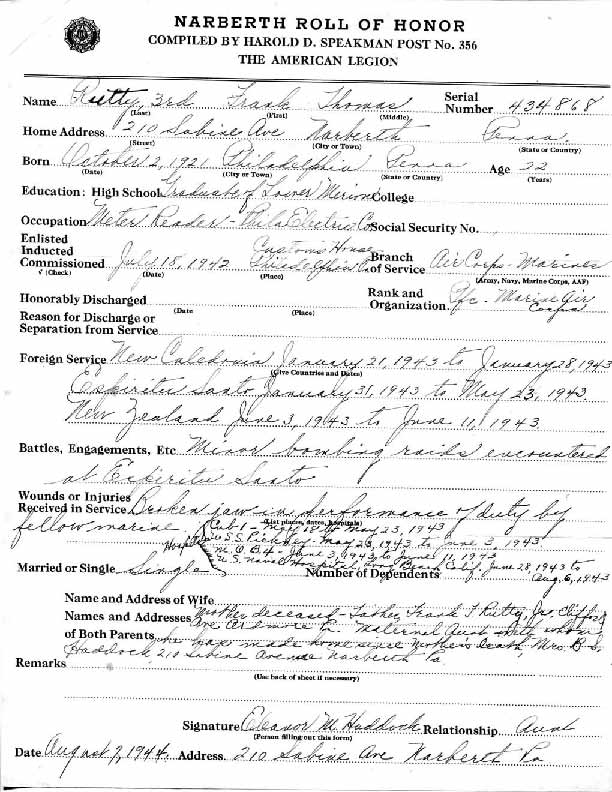 NARBERTH ROLL OF HONOR
COMPILED BY HAROLD D. SPEAKMAN POST No. 356
THE AMERICAN LEGION
Name Rutty, 3rd Frank Thomas Serial Number 434868
(Last) (First) (Middle)
Home Address 210 Sabine Ave Narberth Penna.
(Street) (City or Town) (State or Country)
Born October 2, 1921 Philadelphia Penna Age 22
(Date) (City or Town) (State or Country) (Years)
Education: High School Graduate of Lower Merion College
Occupation Meter Reader - Phila Electric Co Social Security No.
Enlisted
Inducted
Commissioned July 18, 1942 Customs House Philadelphia Branch of Service Air Corps - Marines
√ (Check) (Date) (Place) (Army, Navy, Marine Corps, AAF)
Honorably Discharged Rank and Organization Pfc. - Marine Air Corps
(Date (Place)
Reason for Discharge or
Separation from Service
Foreign Service New Caledonia January 21, 1943 to January 28, 1943
(Give Countries and Dates)
Espiritu Santo January 31, 1943 to May 23, 1943
New Zealand June 3, 1943 to June 11, 1943
Battles, Engagements, Etc Minor bombing raids encountered
at Espiritu Santo
Wounds or Injuries
Received in Service Broken jaw in performance of duty by
(List places, dates, hospitals)
fellow marine Cub 1 - May 18 to May 23, 1943
Hospitals USS Pickney - May 23, 1943 to June 3, 1943
M.O.B. 4 - June 3, 1943 to June 11, 1943
U.S. Naval Hospital Long Beach Calif. June 28, 1943 to Aug. 6, 1943
Married or Single Single Number of Dependents
Name and Address of Wife
Names and Addresses of Both Parents Mother deceased - Father, Frank T Rutty, Jr. Ave Ardmore Pa Maternal Aunt with whom
he has made home since mothers death Mrs B S.
Haddock, 210 Sabine Avenue Narberth Pa
Remarks
(Use back of sheet if necessary)
Signature Eleanor M. Haddock Relationship Aunt
(Person filling out this form)
Date August 7, 1944 Address 210 Sabine Ave Narberth Pa